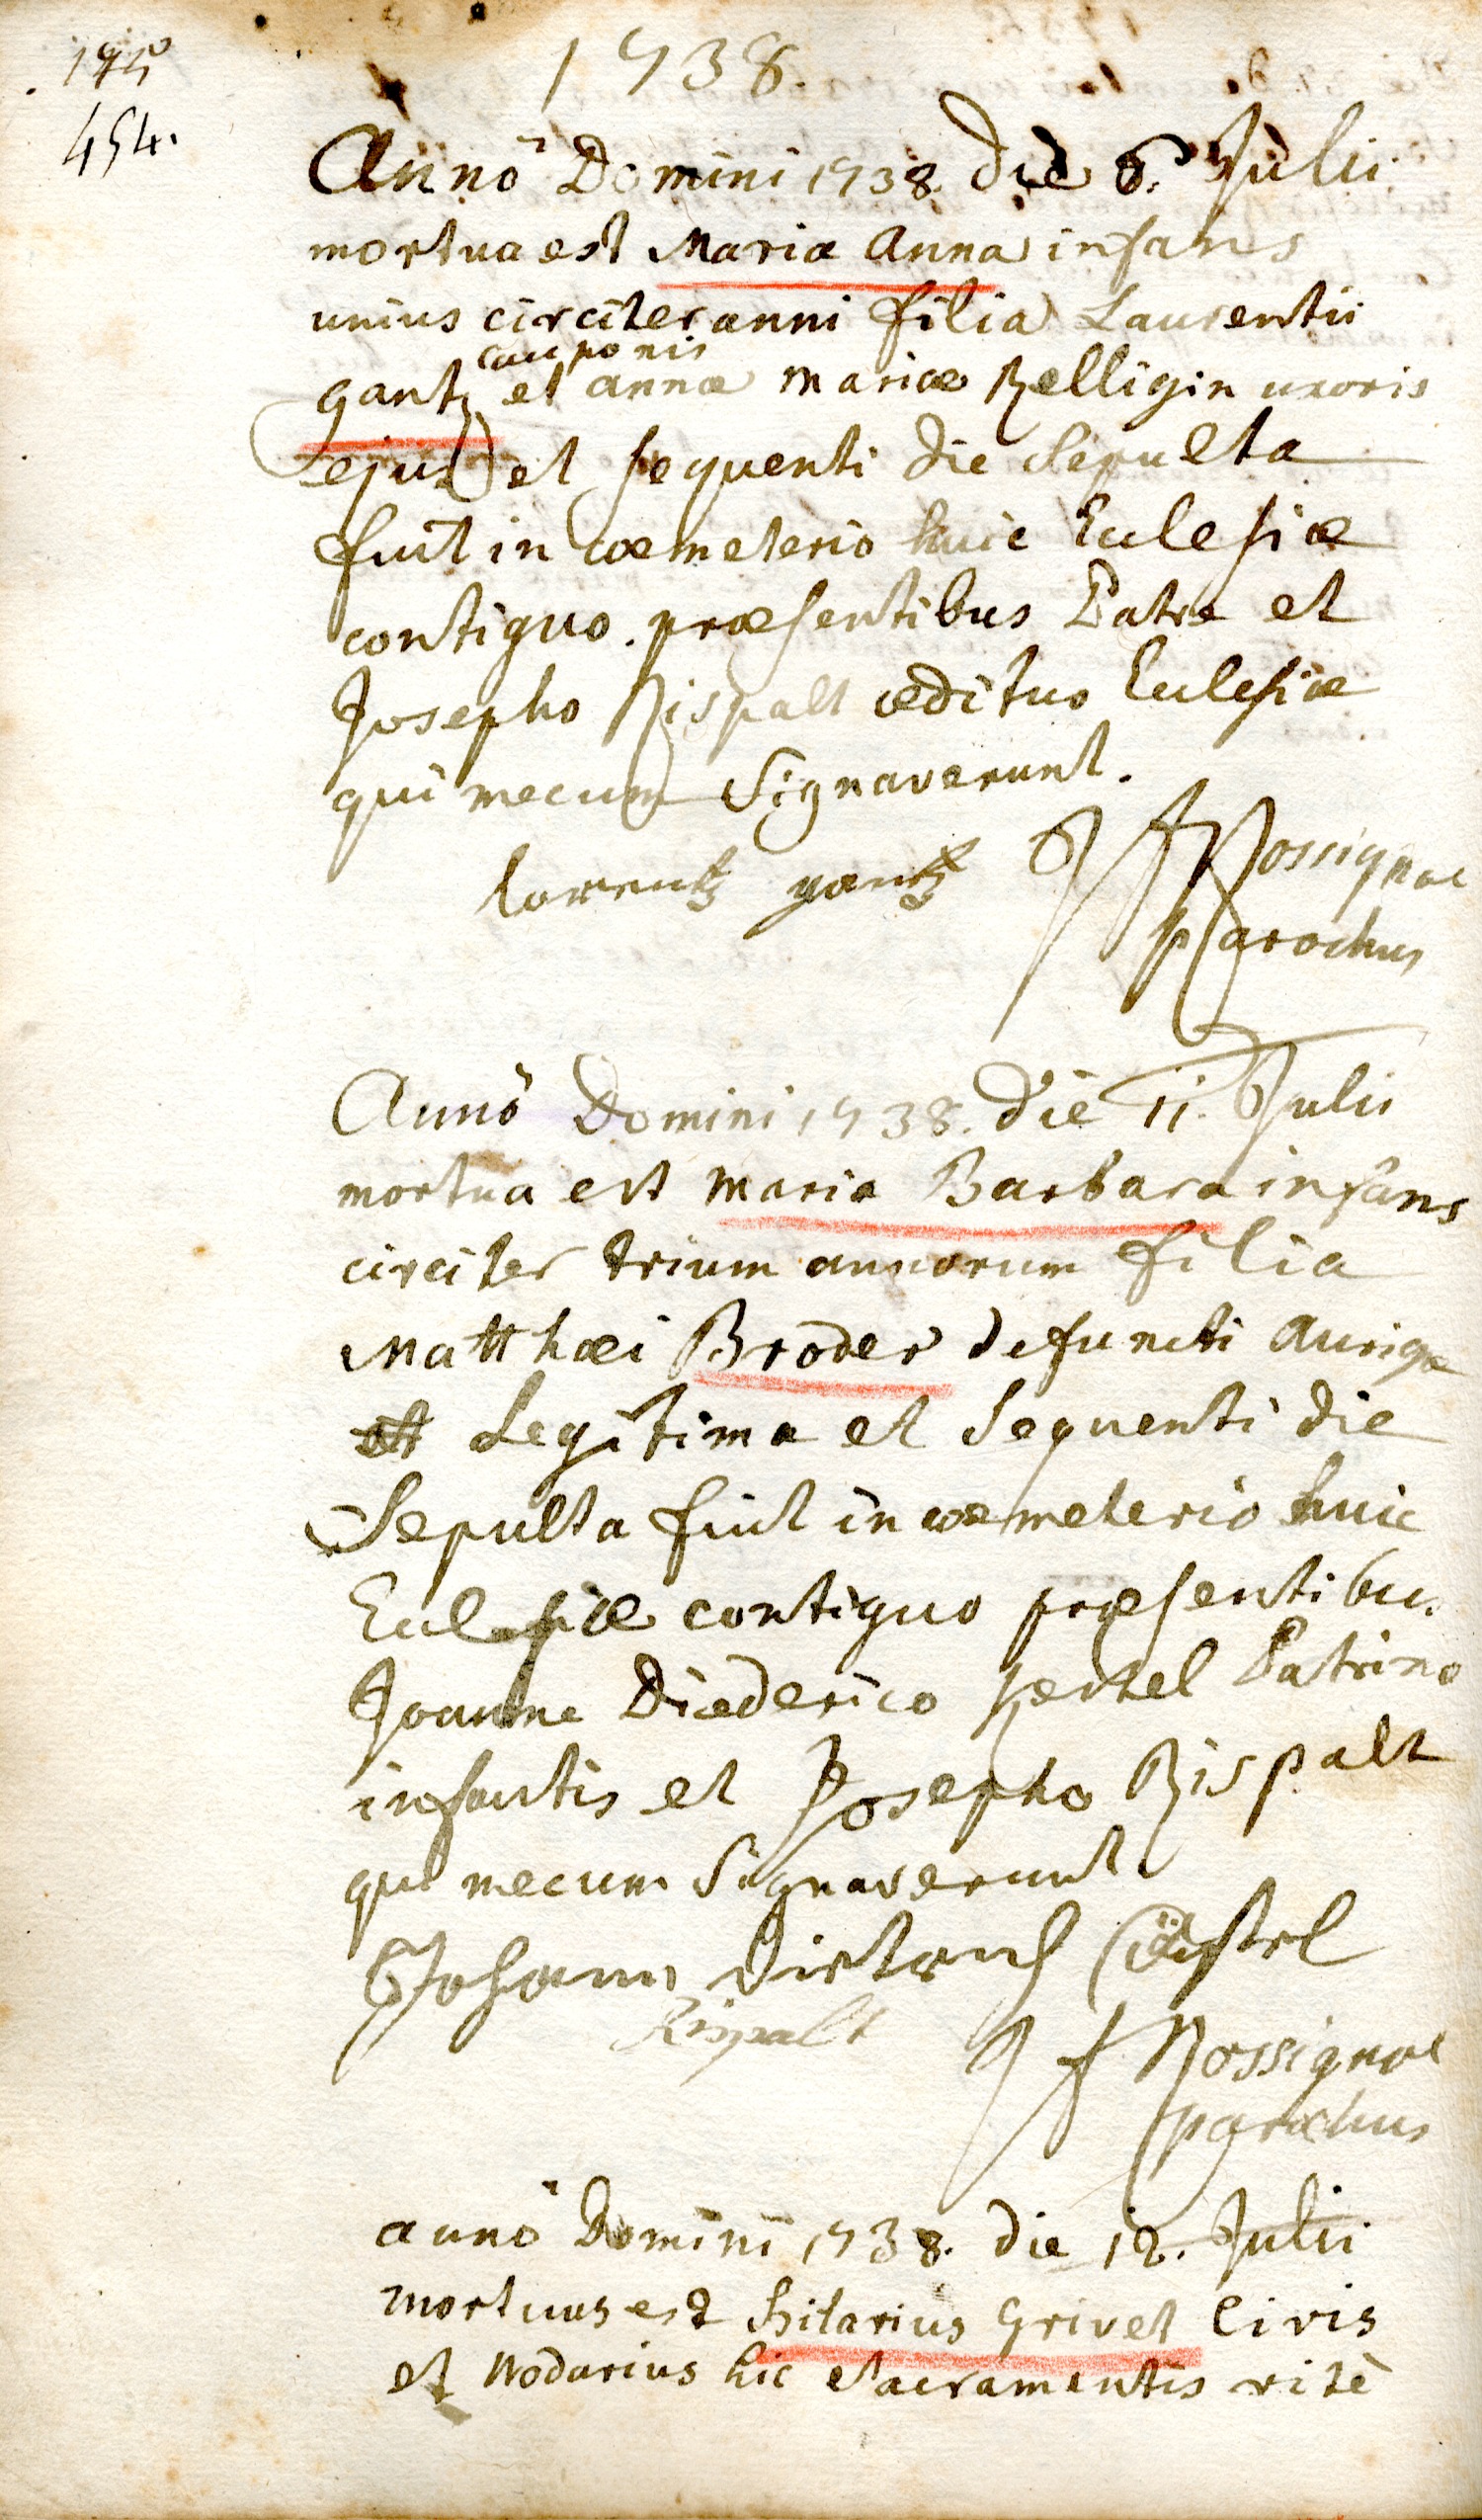 195
454.
1738.
Anno Domini 1738. die 6. Julii
mortua est Maria Anna infans
unius circiter anni filia Laurentii
cauponis
gantz et annæ mariæ Zelligin uxoris
ejus et sequenti die Sepulta
fuit in cœmeterio huic Eclesiæ
contiguo. præsentibus Patre et
Josepho Rispalt ædituo Eclesiæ
qui mecum Signaverunt.
lorentz gantz J f Rossignol
parochus
Anno Domini 1738. die 11. Julii
mortua est maria Barbara infans
circiter trium annorum filia
Matthæi Broder defuncti aurigæ
Legitima et Sequenti die
Sepulta fuit in cœmeterio huic
Eclesiæ contiguo præsentibus
Joanne Diederico Patrino
infantis et Josepho Rispalt
qui mecum Signaverunt
Johann Dietrich
Rispalt J f Rossignol
parochus
anno Domini 1738. die 12. Julii
mortuus est hilarius Grivet Civis
et Nodarius hic Sacramentis ritè